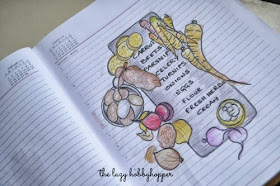 CARROTS
BEETS
PARSNIPS
CELERY
TURNIPS
ONIONS
EGGS
FLOUR
FRESH HERBS
CREAM
the lazy hobbyhopper